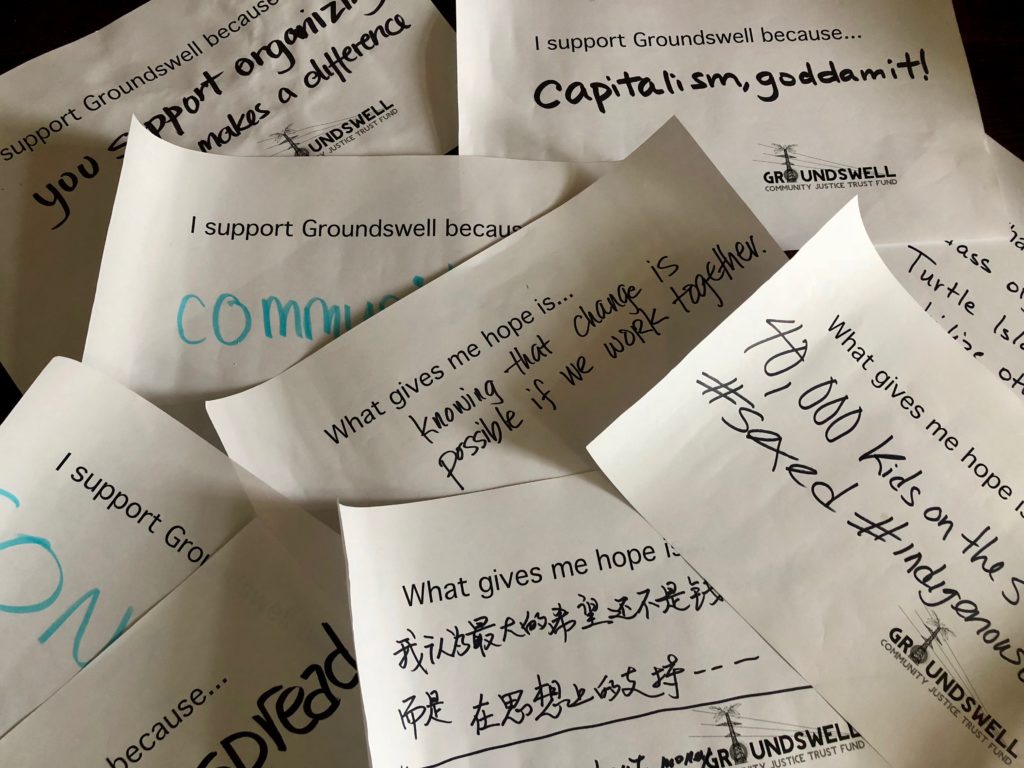 support Groundswell because
you support organizing
makes a difference
GROUNDSWELL
COMMUNITY JUSTICE TRUST FUND
I support Groundswell because...
Capitalism, goddamit!
GROUNDSWELL
COMMUNITY JUSTICE TRUST FUND
I support Groundswell becaus
commu
What gives me hope is...
knowing that change is
possible if we work together.
ass o
Turtle Isla
ilize
What gives me hope is
40,000 kids on the s
#sexed #indygenous
GROUNDSWELL
COMMUNITY JUSTICE TRUST FUND
I support Grou
ON
because...
spread
What gives me hope is
我认为最大的希望还不是钱
而是 在思想上的支持----
more
GROUNDSWELL
COMMUNITY JUSTICE TRUST FUND